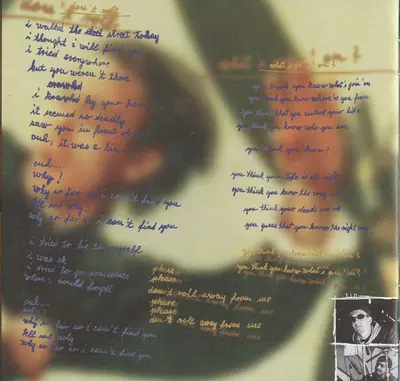 don't roll
i walked the street today
i thought i will find you
i tried everywhere
but you weren't there
i by your
it seemed so deadly
saw you in front of
ouh, it was a lie
ouh...
why!
why so far so i can't find you
tell me why
why so far so i can't find you
i tried to lie to myself
i was ok
i tried to go somewhere
where i could forget
ouh...
why so far so i can't find you
tell me why
why so far so i can't find you
please
please
don't roll away from me
please
please
don't roll away from me
what's goin' on?
you think you know what's goin' on
you think you know where're you from
you think that you control your life
you think you know who you are
you think you know?
you think your life is all right
you think you know the way
you think your deeds are ok
you guess that you know the right way
you think you know what's goin' on?
you think you know what's goin' on?